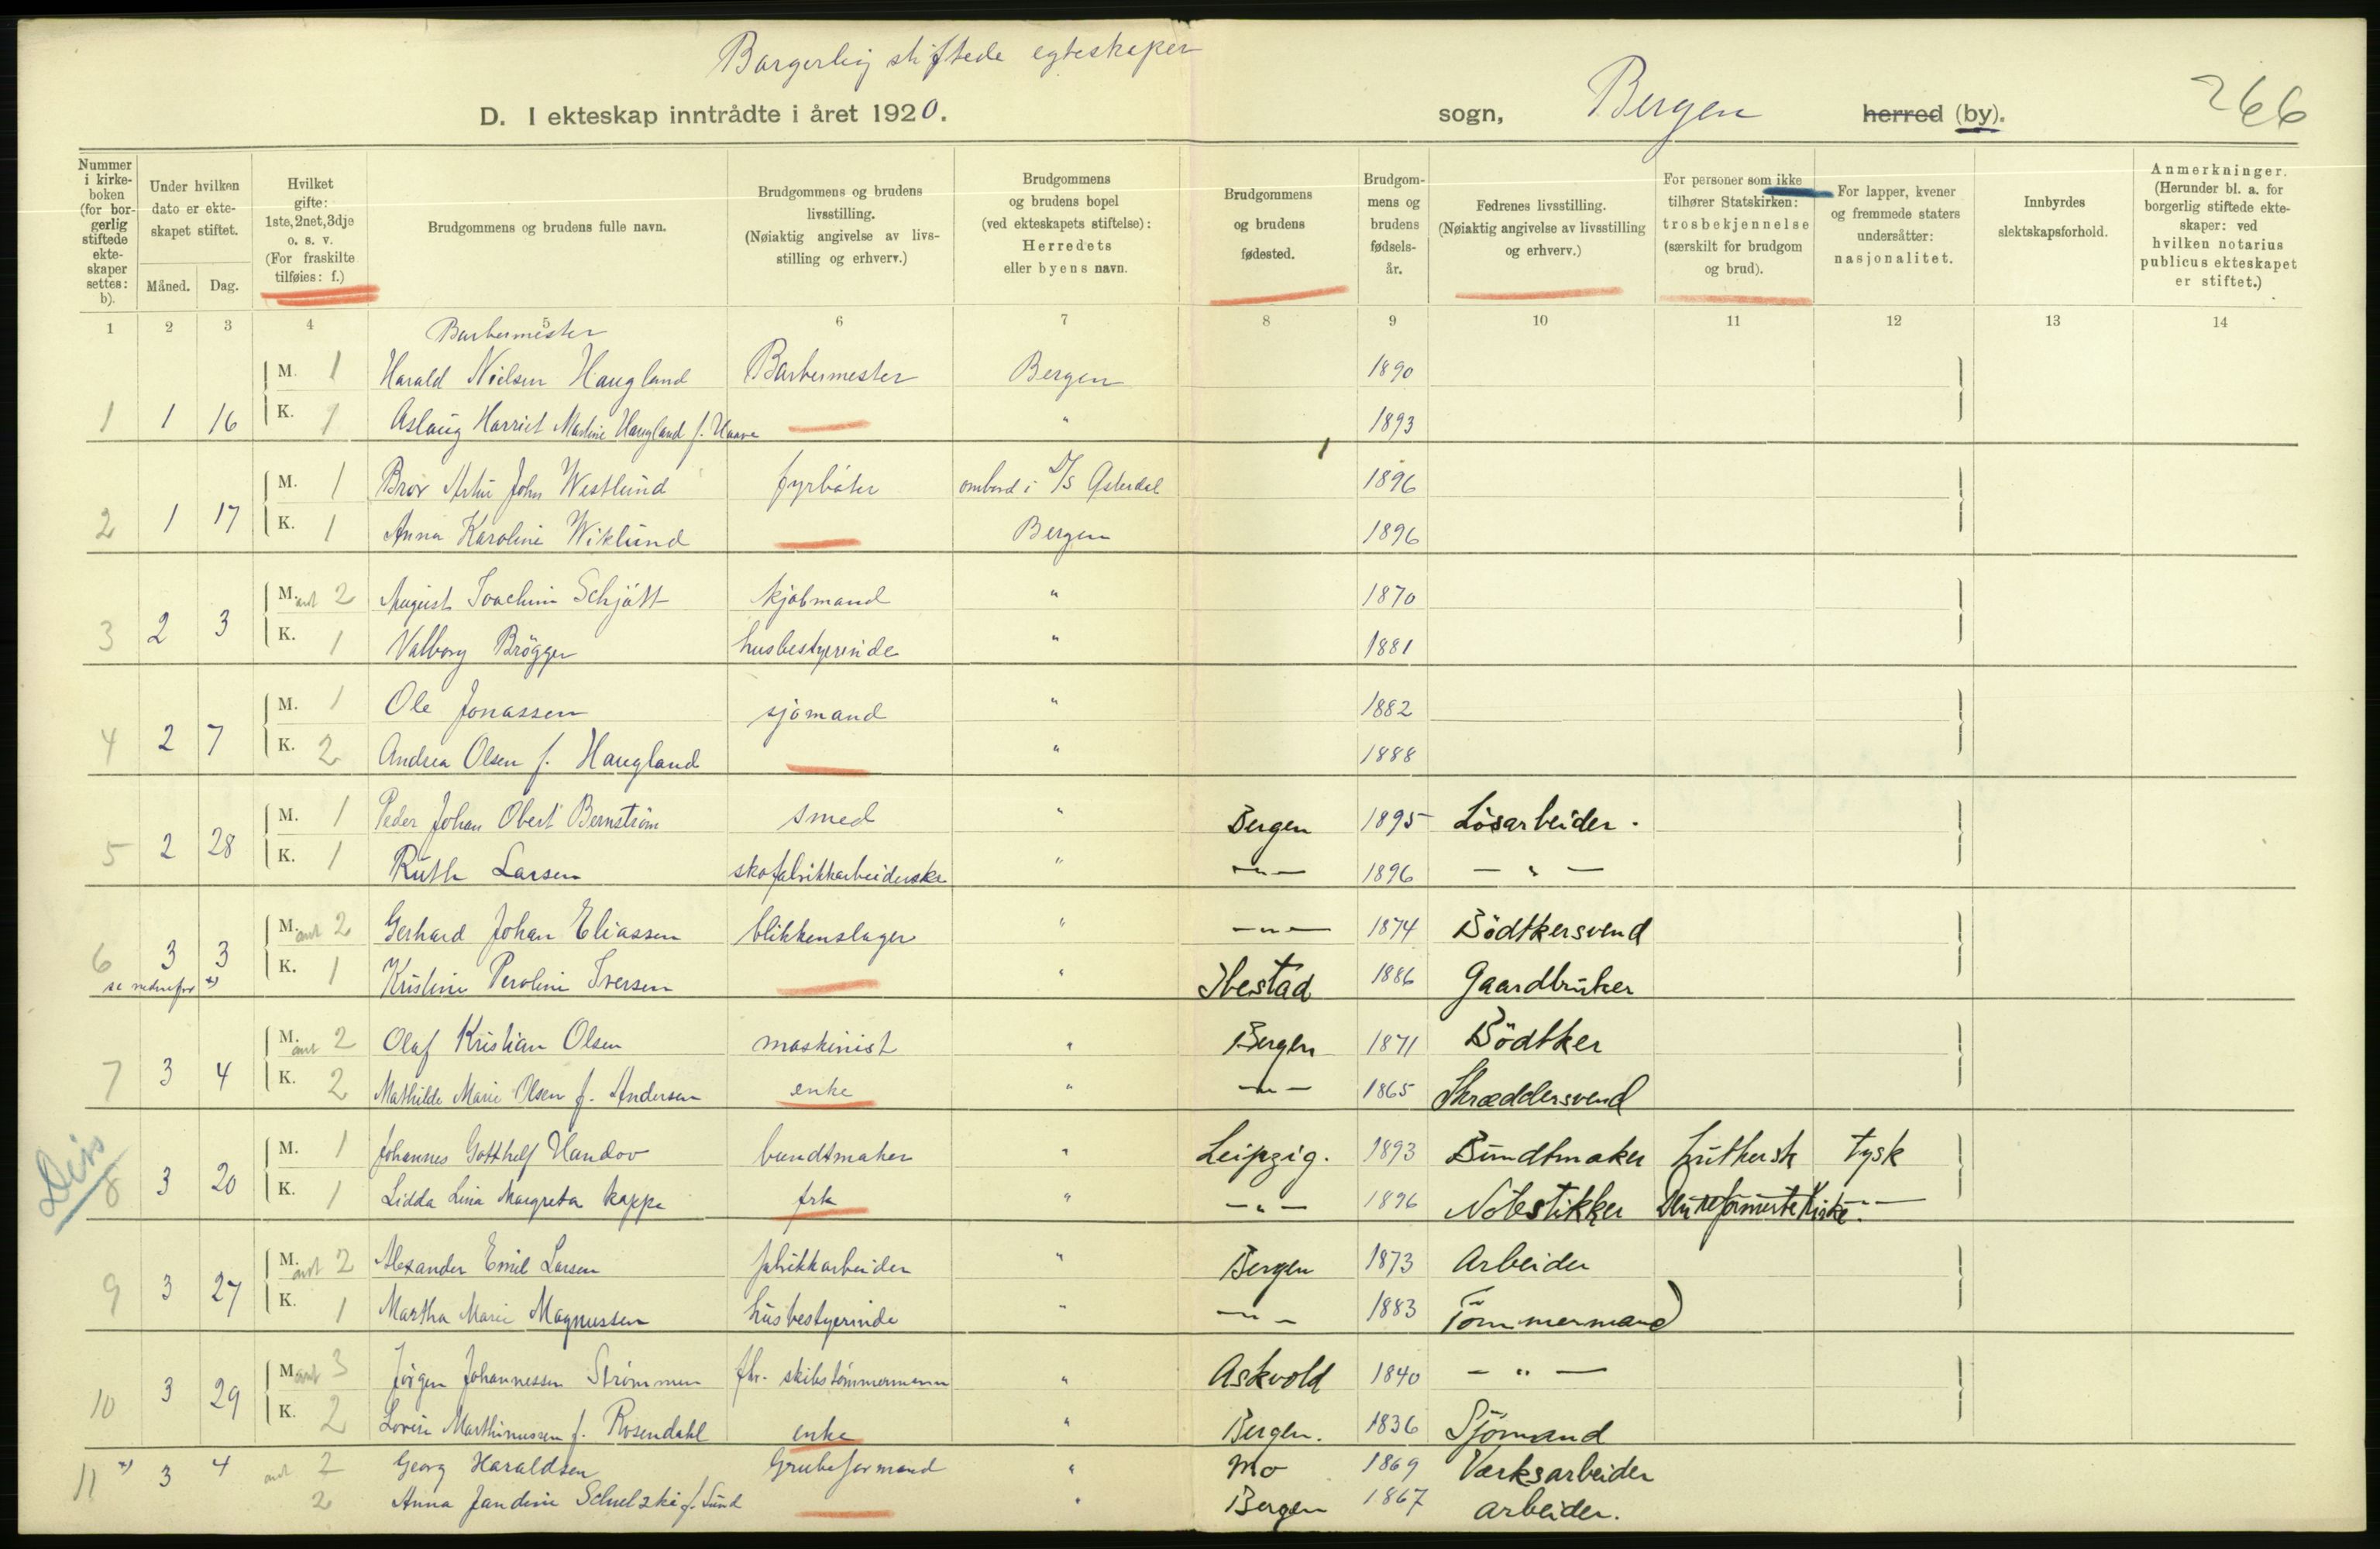 Borgerlig stiftede egteskaper
D. I ekteskap inntrådte i året 1920. sogn, Bergen herred (by). 266
Nummer i kirkeboken (for borgerlig stiftede ekteskaper settes: b).
Under hvilken dato er ekteskapet stiftet. Måned. Dag.
Hvilket gifte: 1ste, 2net, 3dje o. s. v. (For fraskilte tilføies: f.)
Brudgommens og brudens fulle navn.
Brudgommens og brudens livsstilling. (Nøiaktig angivelse av livsstilling og erhverv.)
Brudgommens og brudens bopel (ved ekteskapets stiftelse): Herredets eller byens navn.
Brudgommens og brudens fødested.
Brudgommens og brudens fødselsår.
Fedrenes livsstilling. (Nøiaktig angivelse av livsstilling og erhverv.)
For personer som ikke tilhører Statskirken: trosbekjennelse (særskilt for brudgom og brud).
For lapper, kvener og fremmede staters undersåtter: nasjonalitet.
Innbyrdes slektskapsforhold.
Anmerkninger. (Herunder bl. a. for borgerlig stiftede ekteskaper: ved hvilken notarius publicus ekteskapet er stiftet.)
1 2 3 4 5 6 7 8 9 10 11 12 13 14
Barbermester
M. 1 Harald Nielsen Haugland Barbermester Bergen 1890
1 1 16 K. 1 Aslaug Harriet Martine Haugland f. Haave " 1893
M. 1 Bror Artur John Westlund fyrböter ombord i D/S Østerdal 1896
2 1 17 K. 1 Anna Karoline Wiklund Bergen 1896
M. ant 2 August Joachim Schjött kjöbmand " 1870
3 2 3 K. 1 Valborg Brögger husbestyrerinde " 1881
M. 1 Ole Jonassen sjömand " 1882
4 2 7 K. 2 Andrea Olsen f. Haugland " 1888
M. 1 Peder Johan Obert Bernström smed " Bergen 1895 Lösarbeider.
5 2 28 K. 1 Ruth Larsen skofabrikkarbeiderske " — " — 1896 — " —
M. ant 2 Gerhard Johan Eliassen blikkenslager " — " — 1874 Bödtkersvend
6 3 3 K. 1 Kristine Peroline Iversen " Ibestad 1886 Gaardbruker
se nedenfor *)
M. ant 2 Olaf Kristian Olsen maskinist " Bergen 1871 Bödtker
7 3 4 K. 2 Mathilde Marie Olsen f. Andersen enke " — " — 1865 Skræddersvend
M. 1 Johannes Gotthelf Handov bundtmaker " Leipzig. 1893 Bundtmaker Luthersk tysk
8 3 20 K. 1 Lidda Lina Margreta Kappe frk " — " — 1896 Notestikker Den reformerte Kirke. — " —
M. ant 2 Alexander Emil Larsen fabrikkarbeider " Bergen 1873 Arbeider
9 3 27 K. 1 Martha Marie Magnussen husbestyrerinde " — " — 1883 Tömmermand
M. ant 3 Jörgen Johannessen Strömmen fhv. skibstömmermann " Askvold 1840 — " —
10 3 29 K. 2 Lovise Marthinussen f. Rosendahl enke " Bergen. 1836 Sjömand
11 *) 3 4 ant 2 Georg Haraldsen Grubeformand " Mo 1869 Værksarbeider
2 Anna Jandine Schulzki f. Sund " Bergen 1867 Arbeider.